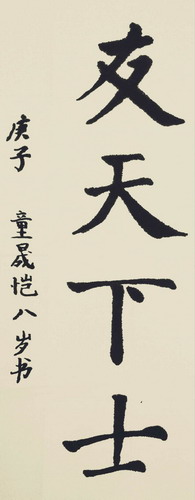 友天下士
庚子 童晟恺八岁书